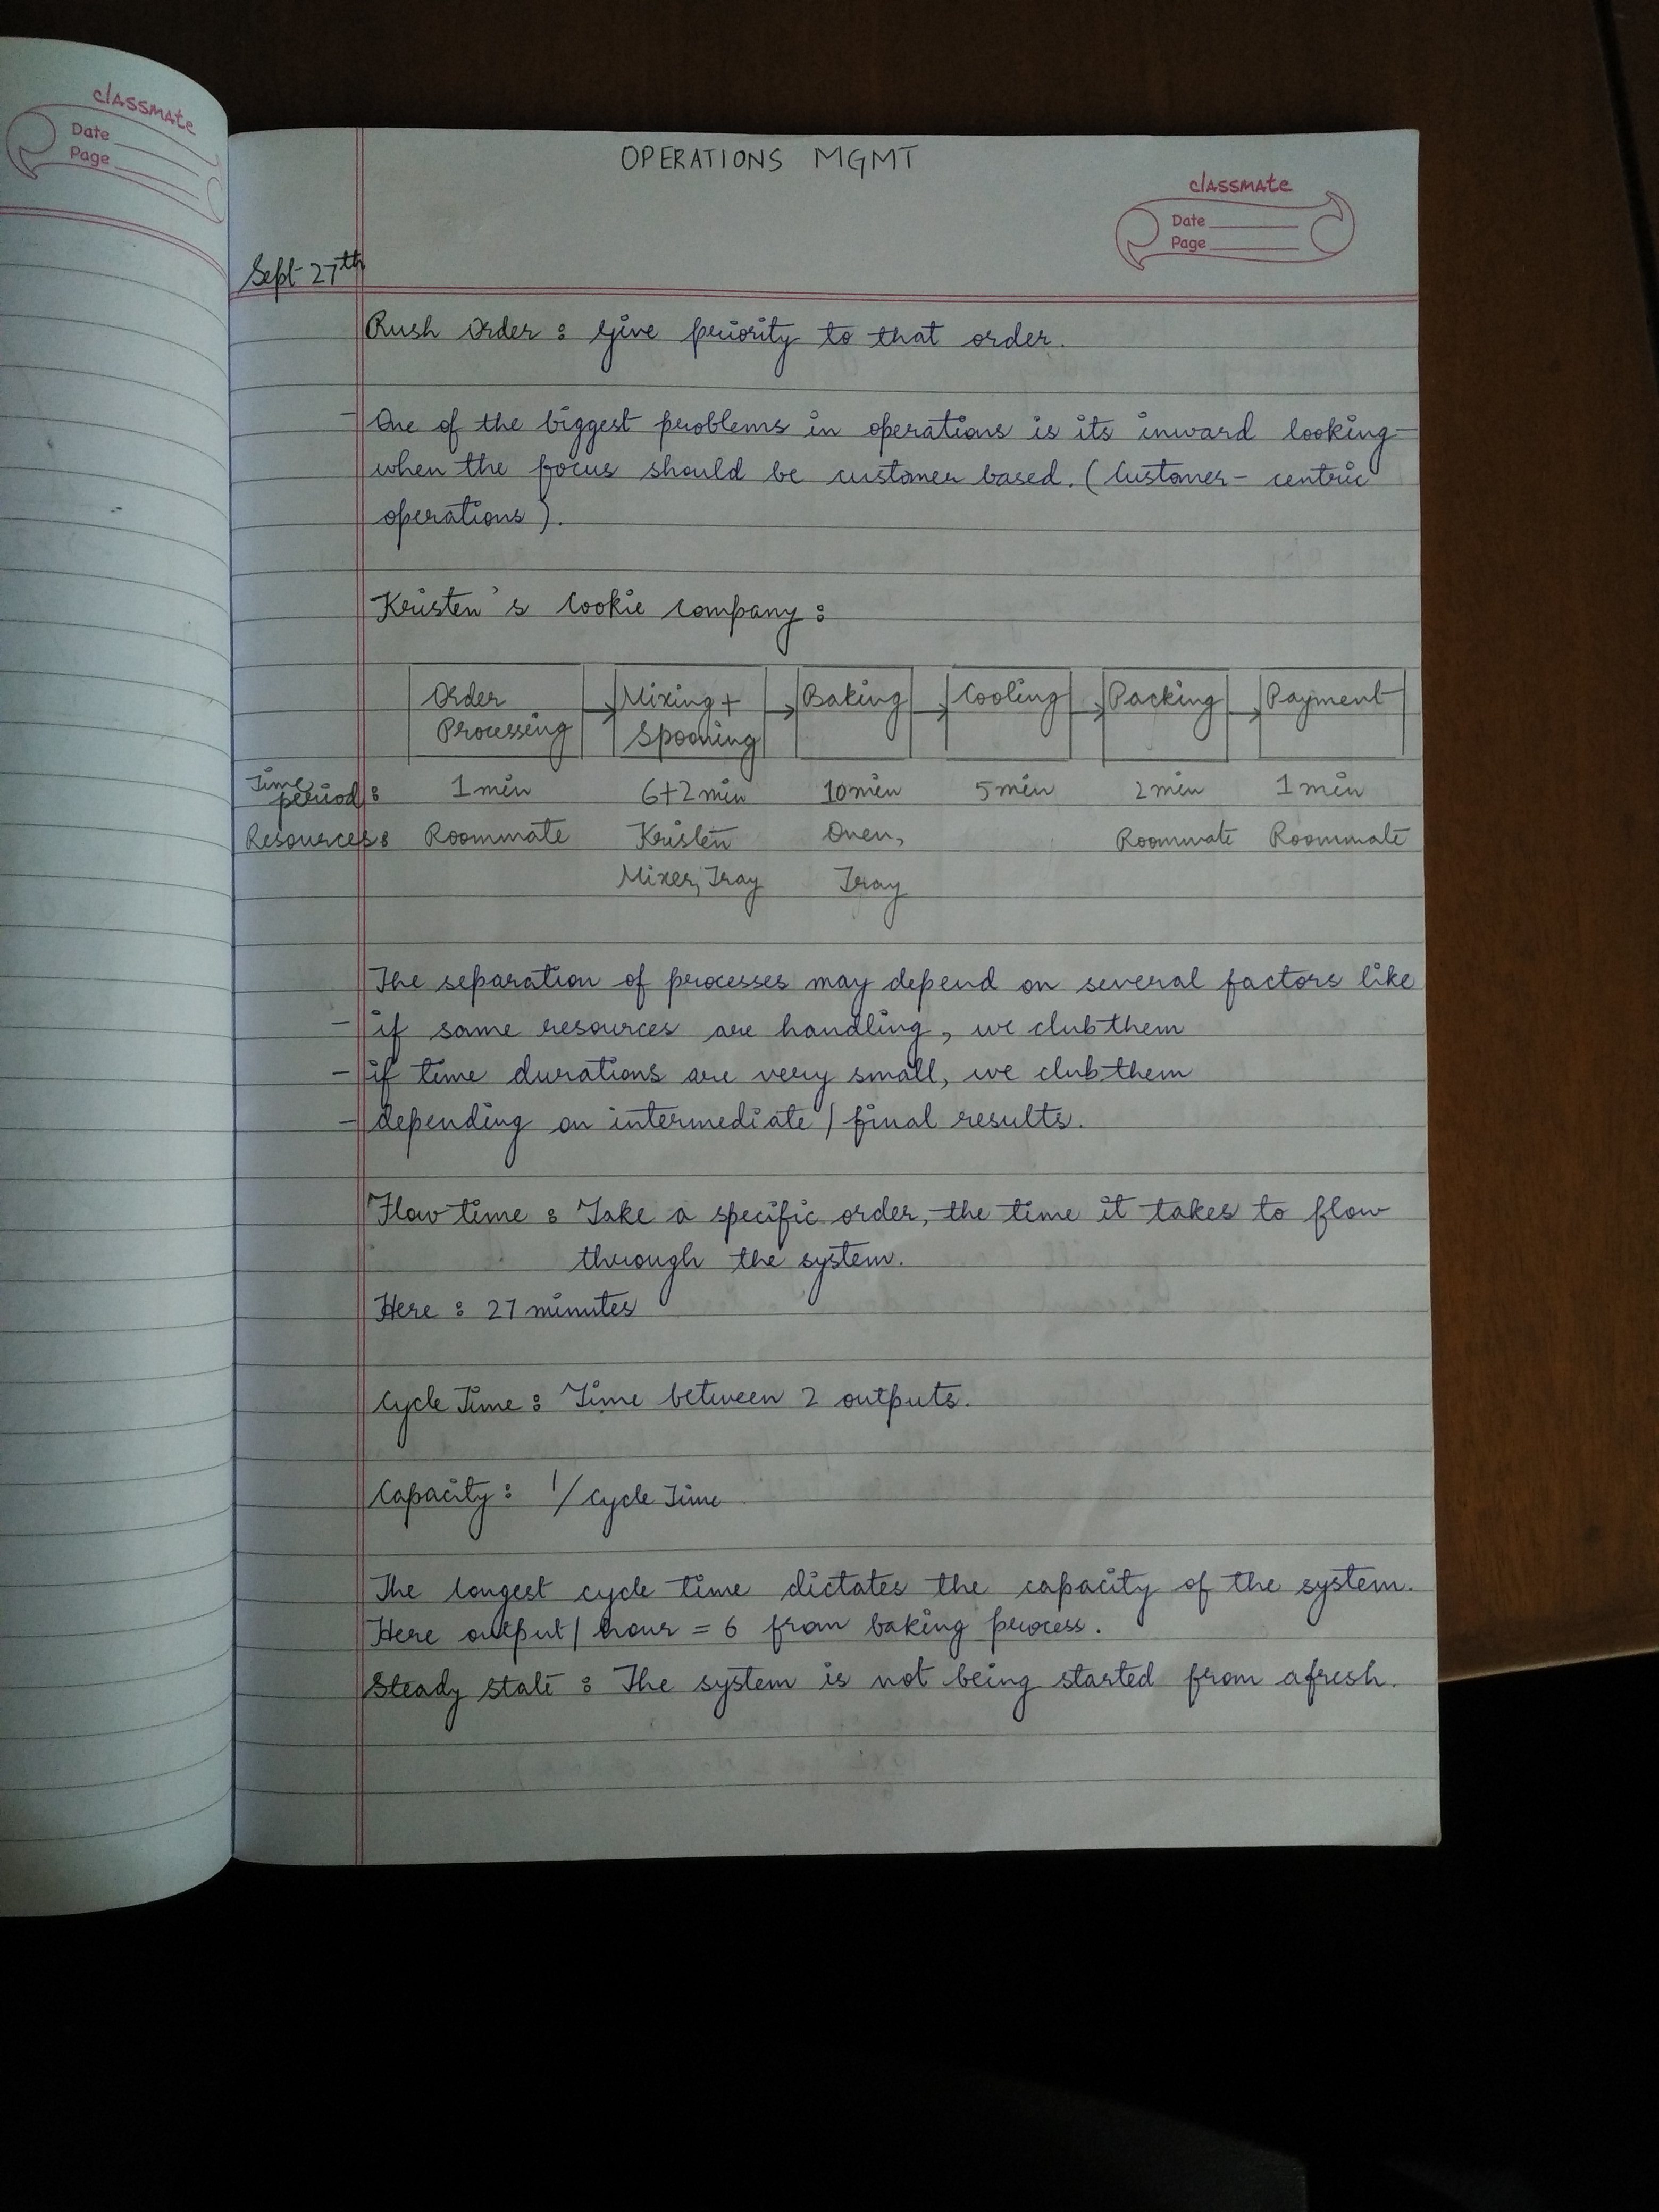 classmate
Date
Page
OPERATIONS MGMT
classmate
Date
Page
Sept 27th
Rush Order : Give priority to that order.
- One of the biggest problems in operations is its inward looking
when the focus should be customer based. (Customer - centric
operations).
Kristen's Cookie Company :
Order Processing → Mixing + Spooning → Baking → Cooling → Packing → Payment
Time period : 1 min 6+2 min 10 min 5 min 2 min 1 min
Resources : Roommate Kristen Oven, Roommate Roommate
Mixer, Tray Tray
The separation of processes may depend on several factors like
- if same resources are handling, we club them
- if time durations are very small, we club them
- depending on intermediate / final results.
Flow time : Take a specific order, the time it takes to flow
through the system.
Here : 27 minutes
Cycle Time : Time between 2 outputs.
Capacity : 1/Cycle Time
The longest cycle time dictates the capacity of the system.
Here output / hour = 6 from baking process.
Steady state : The system is not being started from afresh.